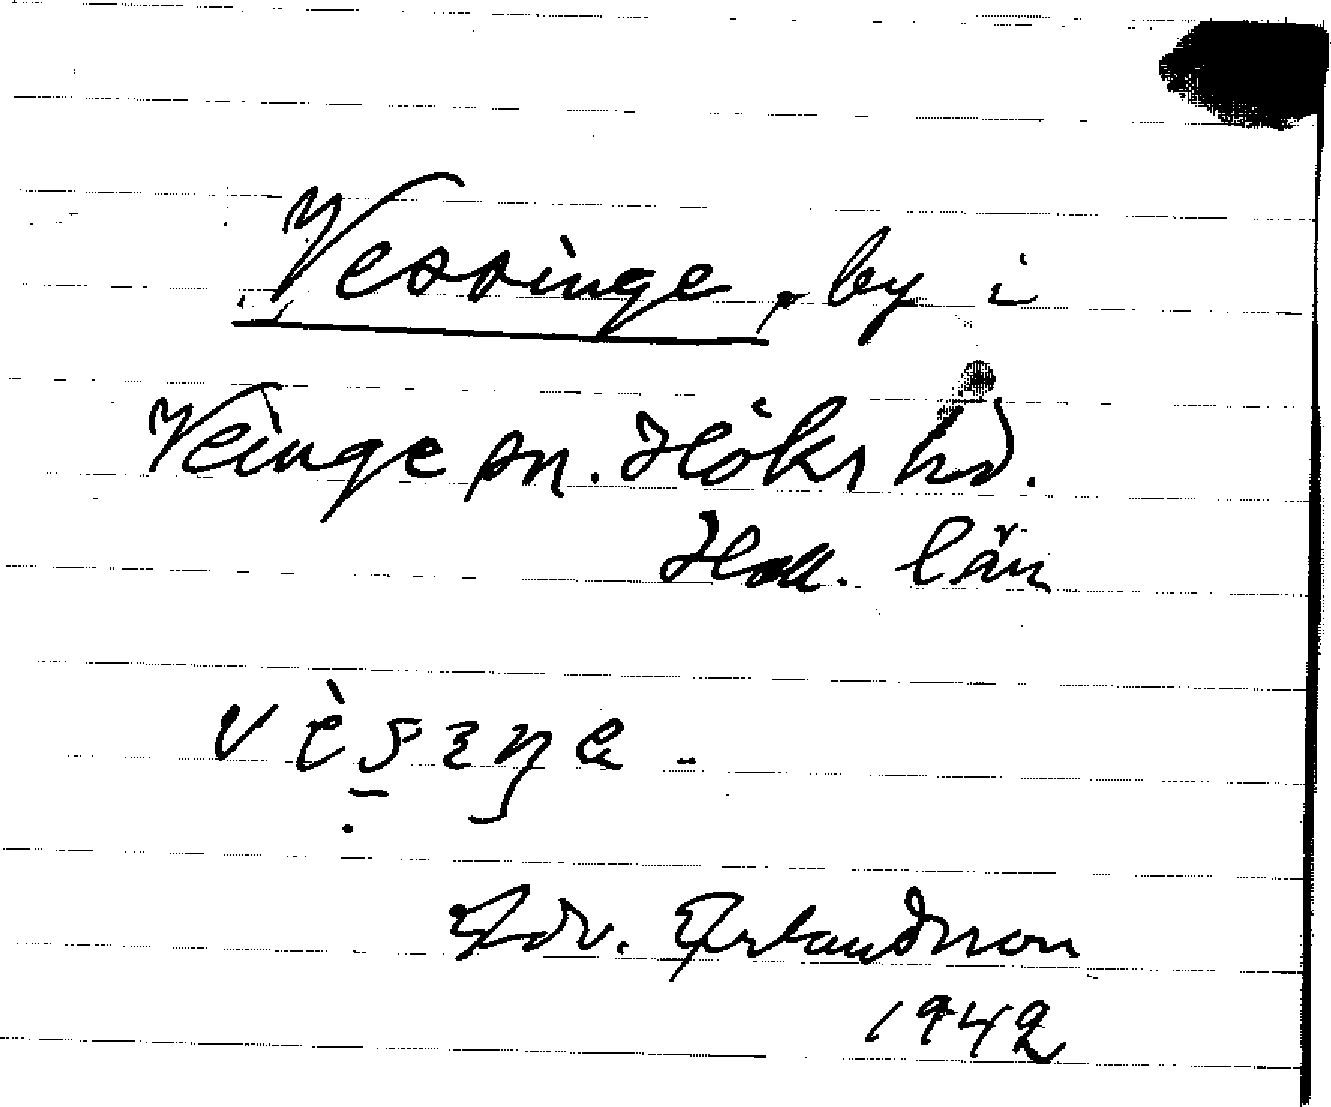 Vessinge, by i
Veinge sn. Höks hd.
Hall. län
vèsɜŋe -
Edv. Erlandsson
1942